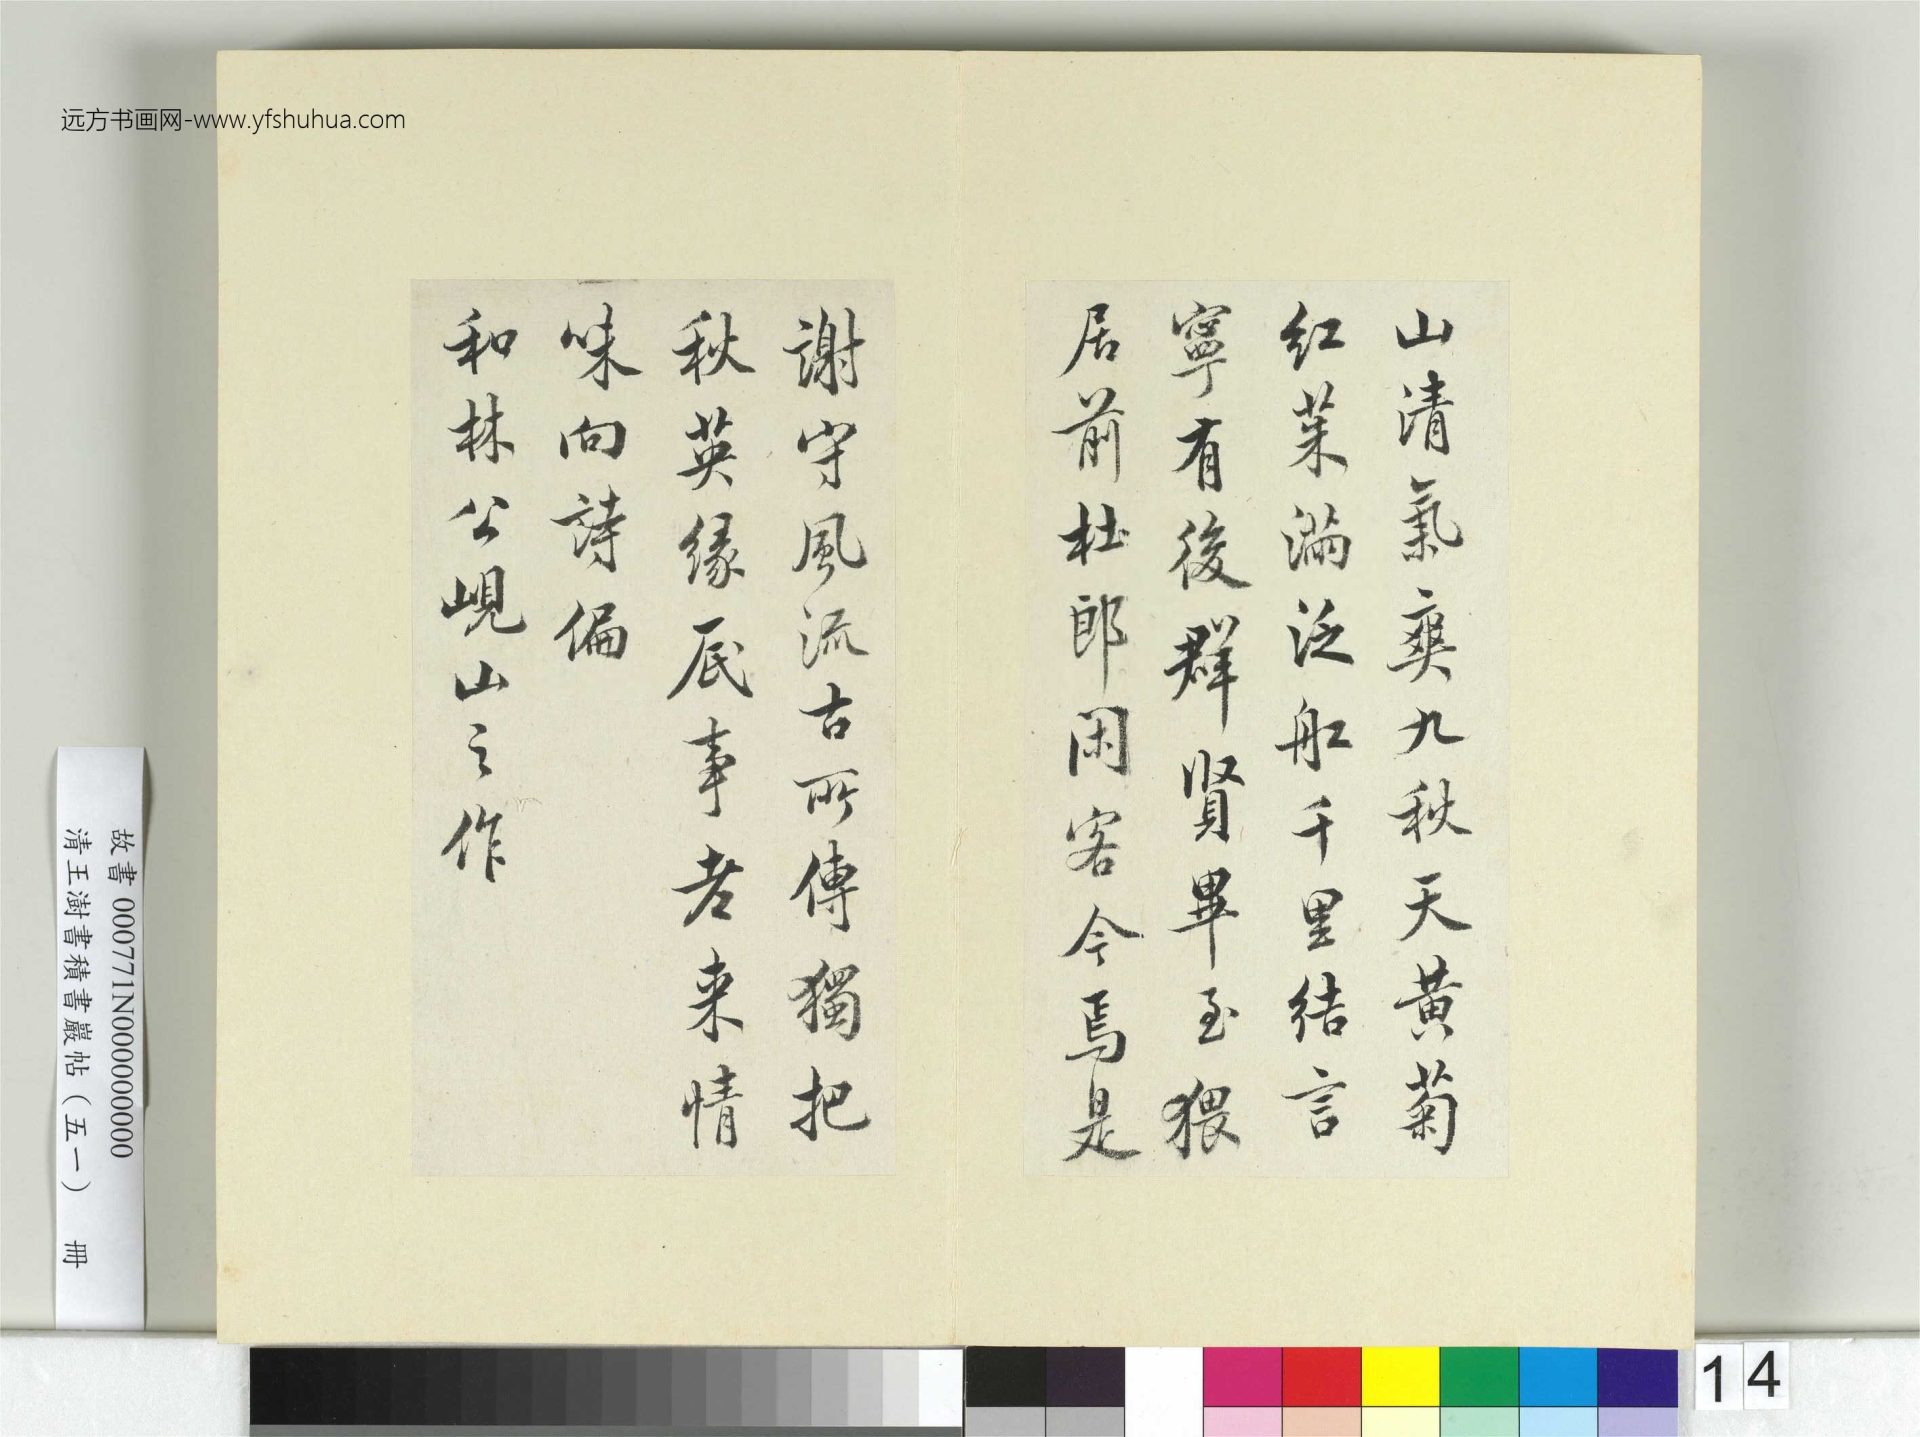 远方书画网-www.yfshuhua.com
山清氣爽九秋天黄菊
红茱滿泛船千里結言
寧有後群賢畢至猥
居前杜郎閑客今焉是
謝守風流古所傳獨把
秋英緣底事老来情
味向詩偏
和林公峴山之作
故書 000771N000000000
清王澍書積書巖帖（五一） 冊
14